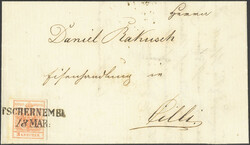 Herrn
Daniel Rakusch
Eisenhandlung in
Cilli
TSCHERNEMBL
13 MAR.